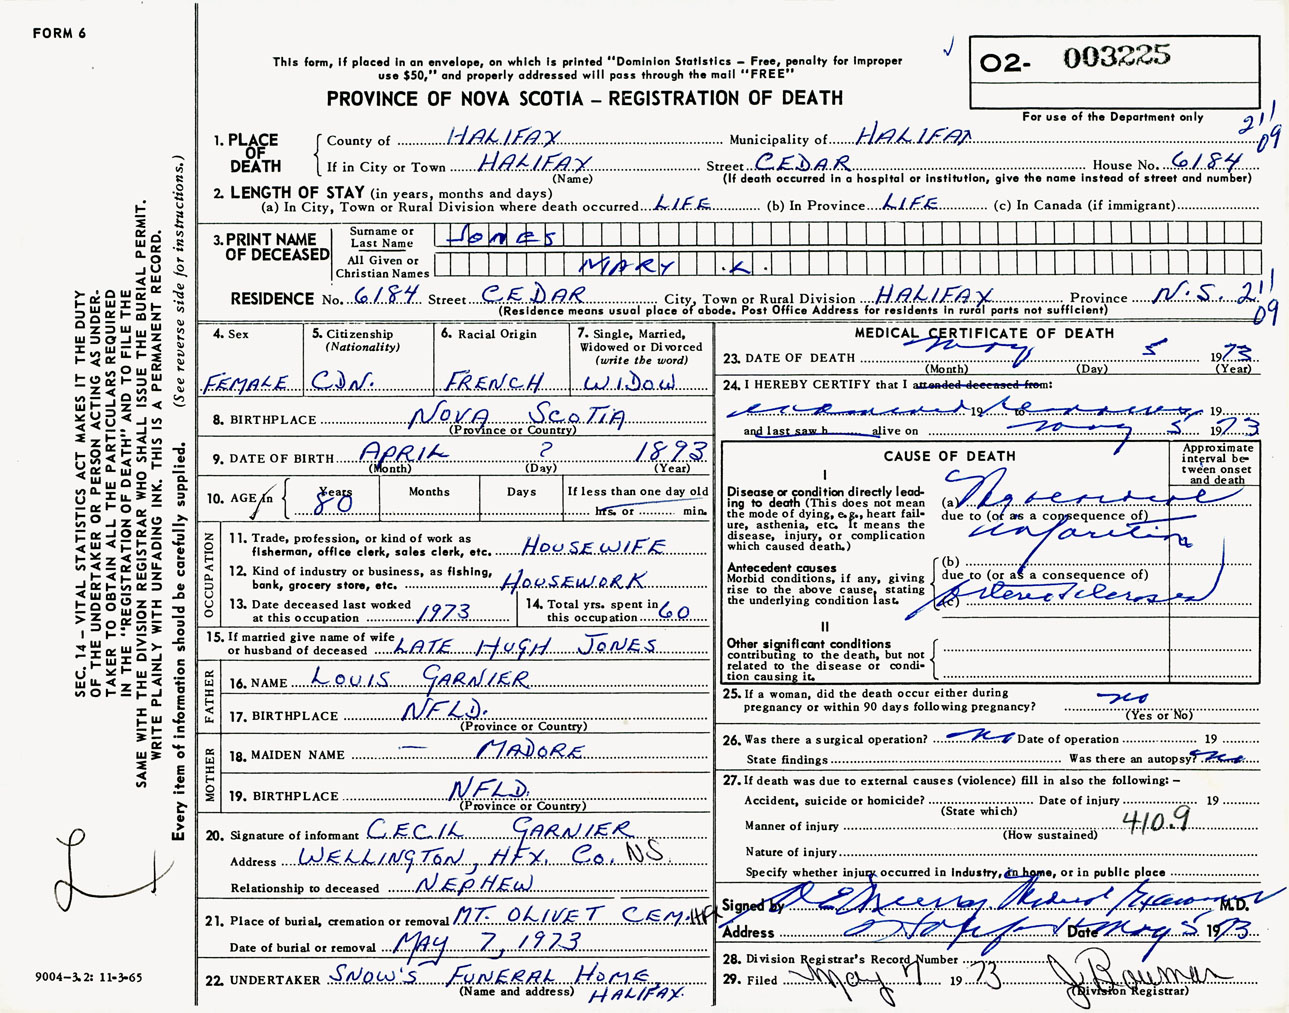 FORM 6
This form, if placed in an envelope, on which is printed "Dominion Statistics – Free, penalty for improper
use $50," and properly addressed will pass through the mail "FREE"
O2- 003225
PROVINCE OF NOVA SCOTIA – REGISTRATION OF DEATH
For use of the Department only
211
09
1. PLACE OF DEATH
County of HALIFAX Municipality of HALIFAX
If in City or Town HALIFAX Street CEDAR House No. 6184
(Name) (If death occurred in a hospital or institution, give the name instead of street and number)
2. LENGTH OF STAY (in years, months and days)
(a) In City, Town or Rural Division where death occurred LIFE (b) In Province LIFE (c) In Canada (if immigrant)
3. PRINT NAME OF DECEASED
Surname or Last Name Jones
All Given or Christian Names MARY .K.
RESIDENCE No. 6184 Street CEDAR City, Town or Rural Division HALIFAX Province N.S. 211
(Residence means usual place of abode. Post Office Address for residents in rural parts not sufficient) 09
4. Sex
FEMALE
5. Citizenship
(Nationality)
CDN.
6. Racial Origin
FRENCH
7. Single, Married,
Widowed or Divorced
(write the word)
WIDOW
8. BIRTHPLACE NOVA SCOTIA
(Province or Country)
9. DATE OF BIRTH APRIL ? 1893
(Month) (Day) (Year)
10. AGE in Years 80 Months Days If less than one day old
hrs. or min.
OCCUPATION
11. Trade, profession, or kind of work as
fisherman, office clerk, sales clerk, etc. HOUSEWIFE
12. Kind of industry or business, as fishing,
bank, grocery store, etc. HOUSEWORK
13. Date deceased last worked
at this occupation 1973
14. Total yrs. spent in
this occupation 60
15. If married give name of wife
or husband of deceased LATE HUGH JONES
FATHER
16. NAME LOUIS GARNIER
17. BIRTHPLACE NFLD.
(Province or Country)
MOTHER
18. MAIDEN NAME — MADORE
19. BIRTHPLACE NFLD.
(Province or Country)
20. Signature of informant CECIL GARNIER
Address WELLINGTON, HFX. Co. NS.
Relationship to deceased NEPHEW
21. Place of burial, cremation or removal MT. OLIVET CEM. HFX
Date of burial or removal MAY 7, 1973
22. UNDERTAKER SNOW'S FUNERAL HOME
(Name and address) HALIFAX.
MEDICAL CERTIFICATE OF DEATH
23. DATE OF DEATH May 5 1973
(Month) (Day) (Year)
24. I HEREBY CERTIFY that I attended deceased from:
19 to 19
and last saw h alive on May 5 1973
CAUSE OF DEATH
Approximate
interval be-
tween onset
and death
I
Disease or condition directly lead-
ing to death (This does not mean
the mode of dying, e.g., heart fail-
ure, asthenia, etc. It means the
disease, injury, or complication
which caused death.)
(a) Myocardial
due to (or as a consequence of)
infarction
Antecedent causes
Morbid conditions, if any, giving
rise to the above cause, stating
the underlying condition last.
(b)
due to (or as a consequence of)
(c) Arteriosclerosis
II
Other significant conditions
contributing to the death, but not
related to the disease or condi-
tion causing it.
25. If a woman, did the death occur either during
pregnancy or within 90 days following pregnancy? no
(Yes or No)
26. Was there a surgical operation? no Date of operation 19
State findings Was there an autopsy? no
27. If death was due to external causes (violence) fill in also the following: –
Accident, suicide or homicide? Date of injury 19
(State which)
Manner of injury 410.9
(How sustained)
Nature of injury
Specify whether injury occurred in Industry, in home, or in public place
Signed by Medical Examiner M.D.
Address Halifax Date May 5 1973
28. Division Registrar's Record Number
29. Filed May 7 1973
(Division Registrar)
SEC. 14 – VITAL STATISTICS ACT MAKES IT THE DUTY
OF THE UNDERTAKER OR PERSON ACTING AS UNDER-
TAKER TO OBTAIN ALL THE PARTICULARS REQUIRED
IN THE "REGISTRATION OF DEATH" AND TO FILE THE
SAME WITH THE DIVISION REGISTRAR WHO SHALL ISSUE THE BURIAL PERMIT.
WRITE PLAINLY WITH UNFADING INK. THIS IS A PERMANENT RECORD.
Every item of information should be carefully supplied. (See reverse side for instructions.)
9004-3.2: 11-3-65